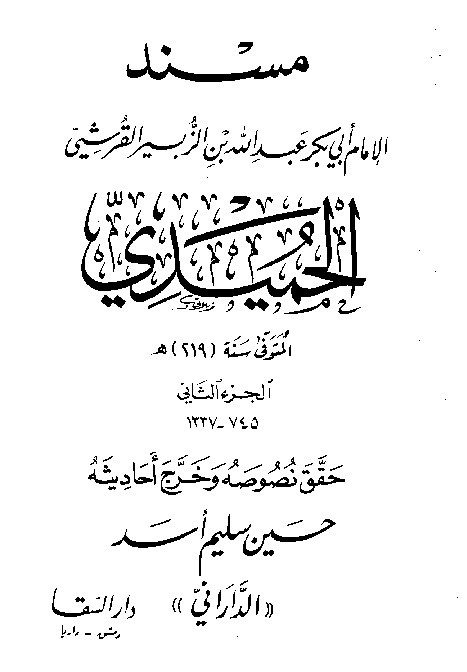 مسند
الإمام أبي بكر عبد الله بن الزُّبير القُرشيّ
الحُمَيْديّ
المتوفّى سَنَة (٢١٩) هـ
الجزء الثاني
٧٤٥ - ١٣٣٧
حَقَّقَ نُصُوصَهُ وَخَرَّجَ أَحَاديثَهُ
حسين سليم أسد
«الدَّارَانيّ»
دار السّقا
دمشق - داريا